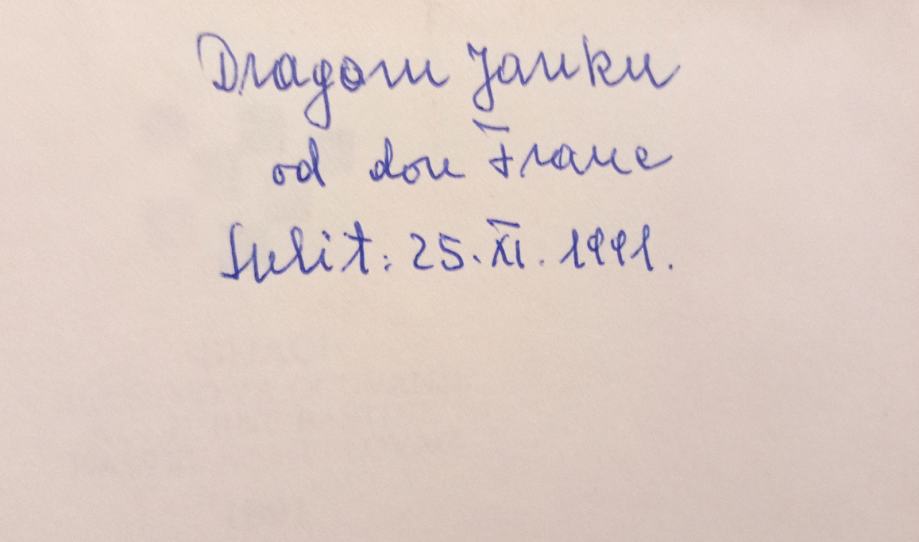 Dragom Janku
od don Frane
Split: 25. XI. 1991.